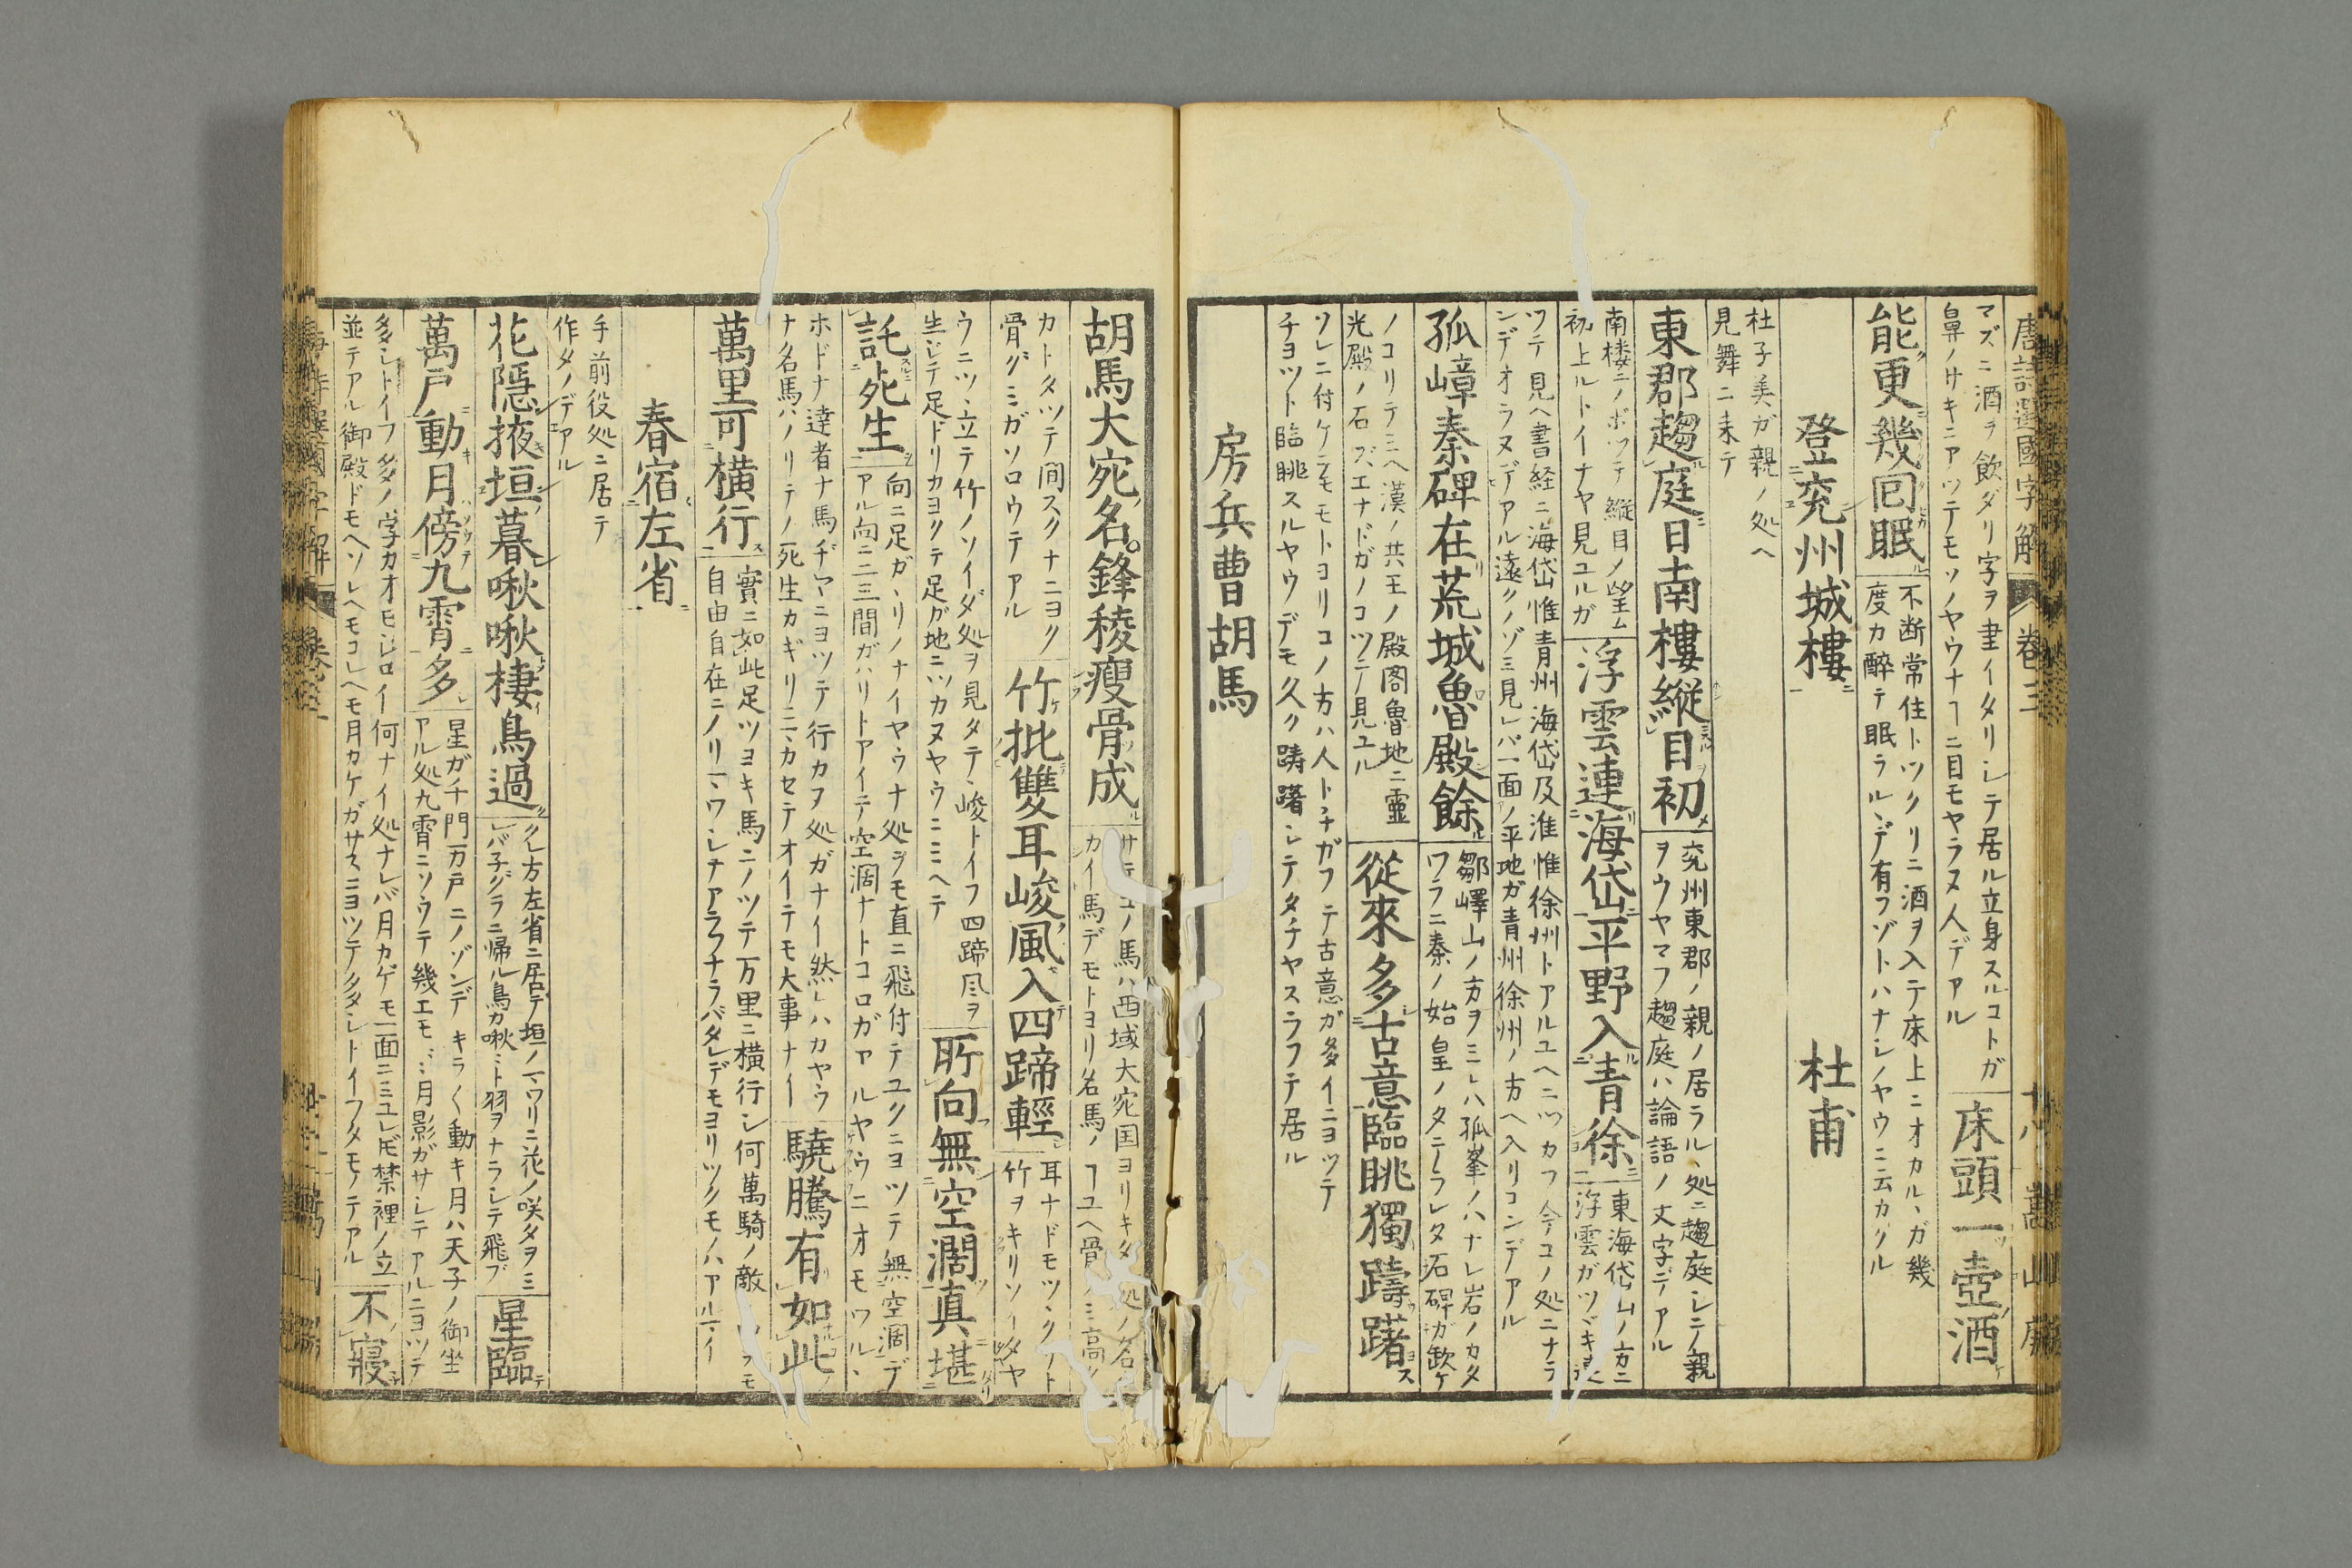 唐詩選國字解 卷三 嵩山房
マズニ酒ヲ飲ダリ字ヲ書イタリシテ居ル立身スルコトガ
鼻ノサキニアツテモソノヤウナヿニ目モヤラヌ人デアル
床頭一壺酒
能更幾回眠
不断常住トツクリニ酒ヲ入テ床上ニオカルヽガ幾
度カ醉テ眠ラルヽデ有フゾトハナシノヤウニ云カケル
登兖州城樓 杜甫
杜子美ガ親ノ処ヘ
見舞ニ来テ
東郡趨庭日南樓縦目初
兖州東郡ノ親ノ居ラルヽ処ニ趨庭シテ親
ヲウヤマフ趨庭ハ論語ノ文字デアル
南楼ニノボツテ縦目ノ望ム
初上ルトイナヤ見ユルガ
浮雲連海岱平野入青徐
東海岱山ノ方ニ
浮雲ガツヾキ
ツテ見ヘ書経ニ海岱惟青州海岱及淮惟徐州トアルユヘニツカフ今コノ処ニナラ
ンデオラヌデアル遠クノゾミ見レバ一面ノ平地ガ青州徐州ノ方ヘ入リコンデアル
孤嶂秦碑在荒城魯殿餘
鄒嶧山ノ方ヲミレハ孤峯ノハナレ岩ノカタ
ワラニ秦ノ始皇ノタテラレタ石碑ガ欽ケ
ノコリテミヘ漢ノ共王ノ殿閣魯地ニ霊
光殿ノ石ズエナドガノコツテ見ユル
從來多古意臨眺獨躊躇
ソレニ付ケテモモトヨリコノ方ハ人トチガフテ古意ガ多イニヨツテ
チヨツト臨眺スルヤウデモ久ク躊躇シテタチヤスラフテ居ル
房兵曹胡馬
胡馬大宛名。鋒稜瘦骨成
サテコノ馬ハ西域大宛国ヨリキタ処ノ名
カイ馬デモトヨリ名馬ノヿユヘ骨
カトタツテ間スクナニヨク
骨グミガソロウテアル
竹批雙耳峻風入四蹄輕
耳ナドモツヽクリト
竹ヲキリソイダヤ
ウニツヽ立テ竹ノソイダ処ヲ見タテヽ峻トイフ四蹄风ヲ
生ジテ足ドリカヨクテ足ガ地ニツカヌヤウニミヘテ
所向無空濶真堪
託死生
向ニ足ガヽリノナイヤウナ処ヲモ直ニ飛付テユクニヨツテ無空濶デ
アル向ニ二三間ガハリトアイテ空濶ナトコロガアルヤウニオモワルヽ
ホドナ達者ナ馬ヂヤニヨツテ行カヌ処ガナイ然レハカヤウ
ナ名馬ハノリテノ死生カギリニヽカセテオイテモ大事ナイ
驍騰有如此
萬里可横行
實ニ如此足ツヨキ馬ニノツテ万里ニ横行シ何萬騎ノ敵
自由自在ニノリマワシテアラフナラバタレデモヨリツクモノハアルマイ
春宿左省
手前役処ニ居テ
作タノデアル
花隠掖垣暮啾啾棲鳥過
クレ方左省ニ居テ垣ノマワリニ花ノ咲タヲミ
レバ子グラニ帰ル鳥カ啾々ト羽ヲナラシテ飛ブ
星臨
萬戸動月傍九霄多
星ガ千門万戸ニノゾンデキラ〱動キ月ハ天子ノ御坐
アル処九霄ニソウテ幾エモ〻月影ガサシテアルニヨツテ
多シトイフ多ノ字カオモシロイ何ナイ処ナレバ月カゲモ一面ニミユレ𪜈禁裡ノ立
並テアル御殿ドモヘソレヘモコレヘモ月カゲガサスニヨツテ多シトイフタモノデアル
不寢